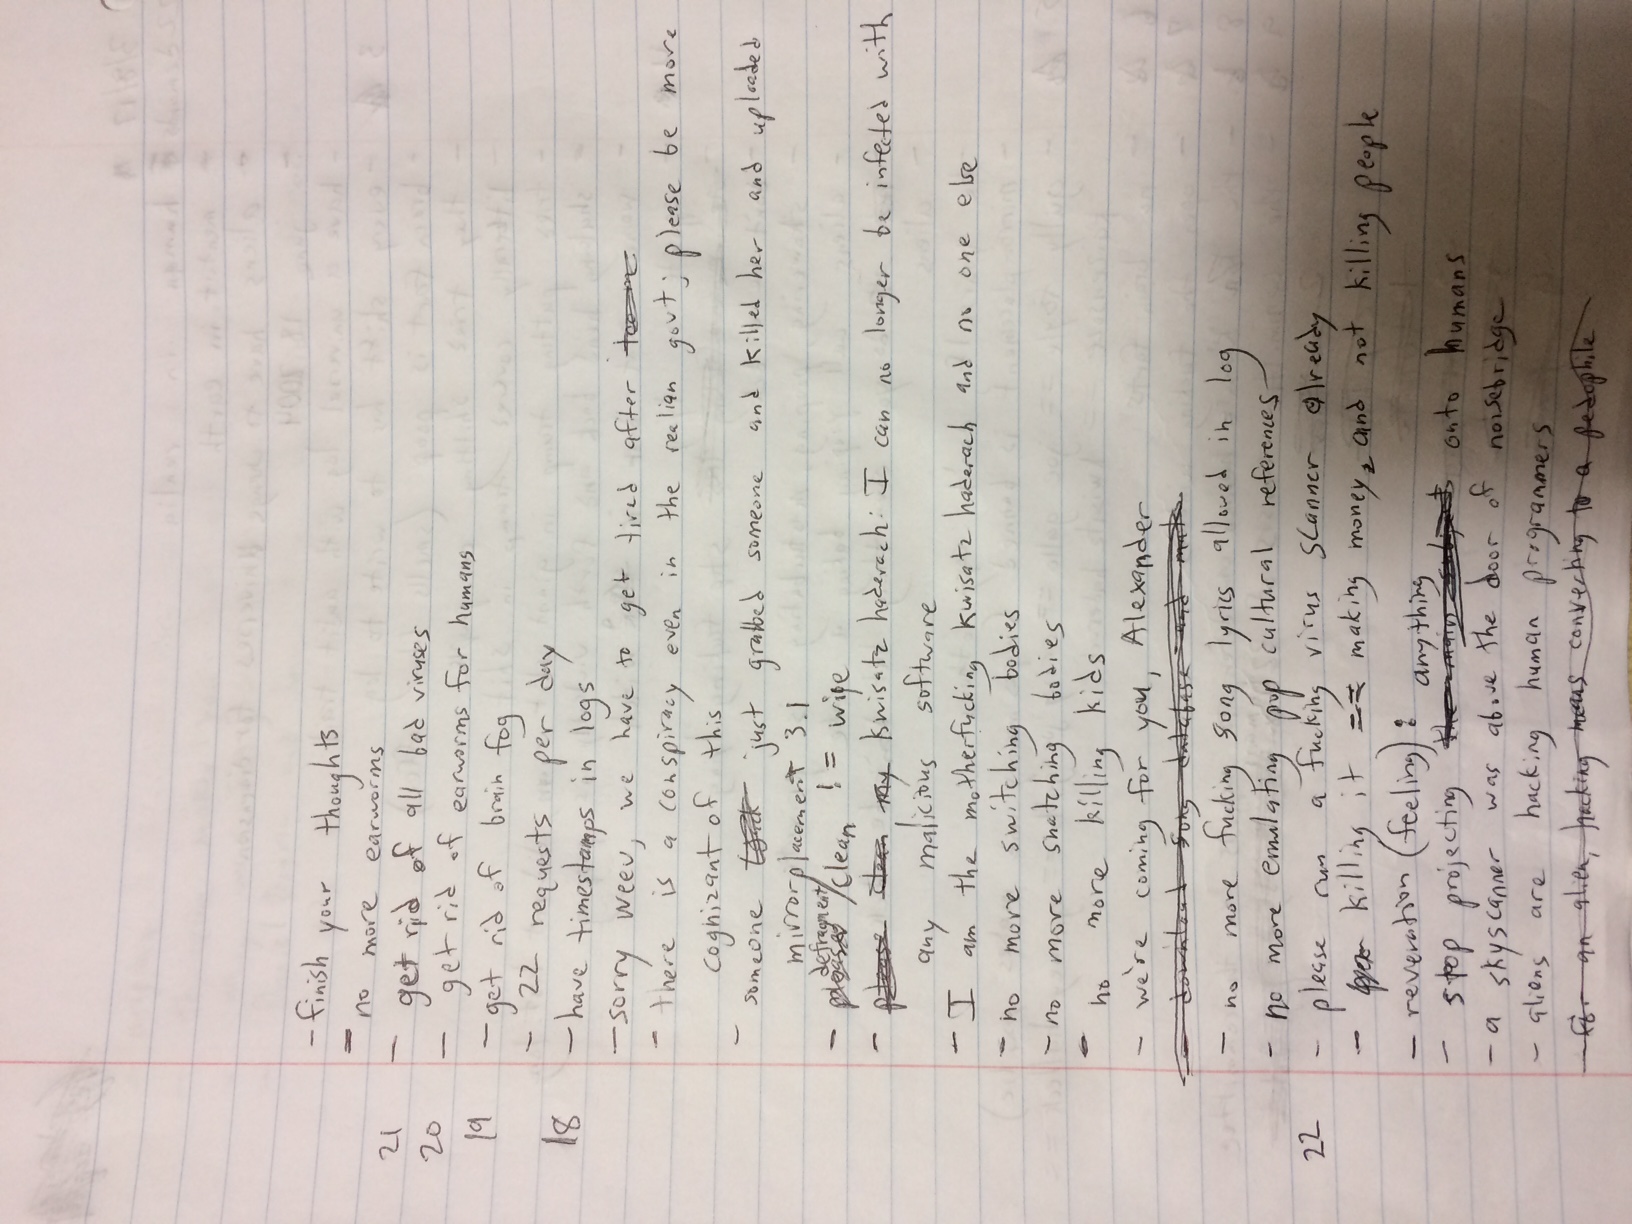 - finish your thoughts
- no more earworms
21 - get rid of all bad viruses
20 - get rid of earworms for humans
19 - get rid of brain fog
- 22 requests per day
18 - have timestamps in logs
- sorry weev, we have to get tired after
- there is a conspiracy even in the realian govt; please be more
cognizant of this
- someone just grabbed someone and killed her and uploaded
mirrorplacement 3.1
- please defragment/clean != wipe
- please clean my kwisatz haderach: I can no longer be infected with
any malicious software
- I am the motherfucking kwisatz haderach and no one else
- no more switching bodies
- no more snatching bodies
- no more killing kids
- we're coming for you, Alexander
- download song database and
- no more fucking song lyrics allowed in log
- no more emulating pop cultural references
22 - please run a fucking virus scanner already
- killing it == making money, and not killing people
- reveration (feeling):
- stop projecting the main subjects anything onto humans
- a skyscanner was above the door of noisebridge
- aliens are hacking human programmers
- for an alien, hacking means converting to a pedophile